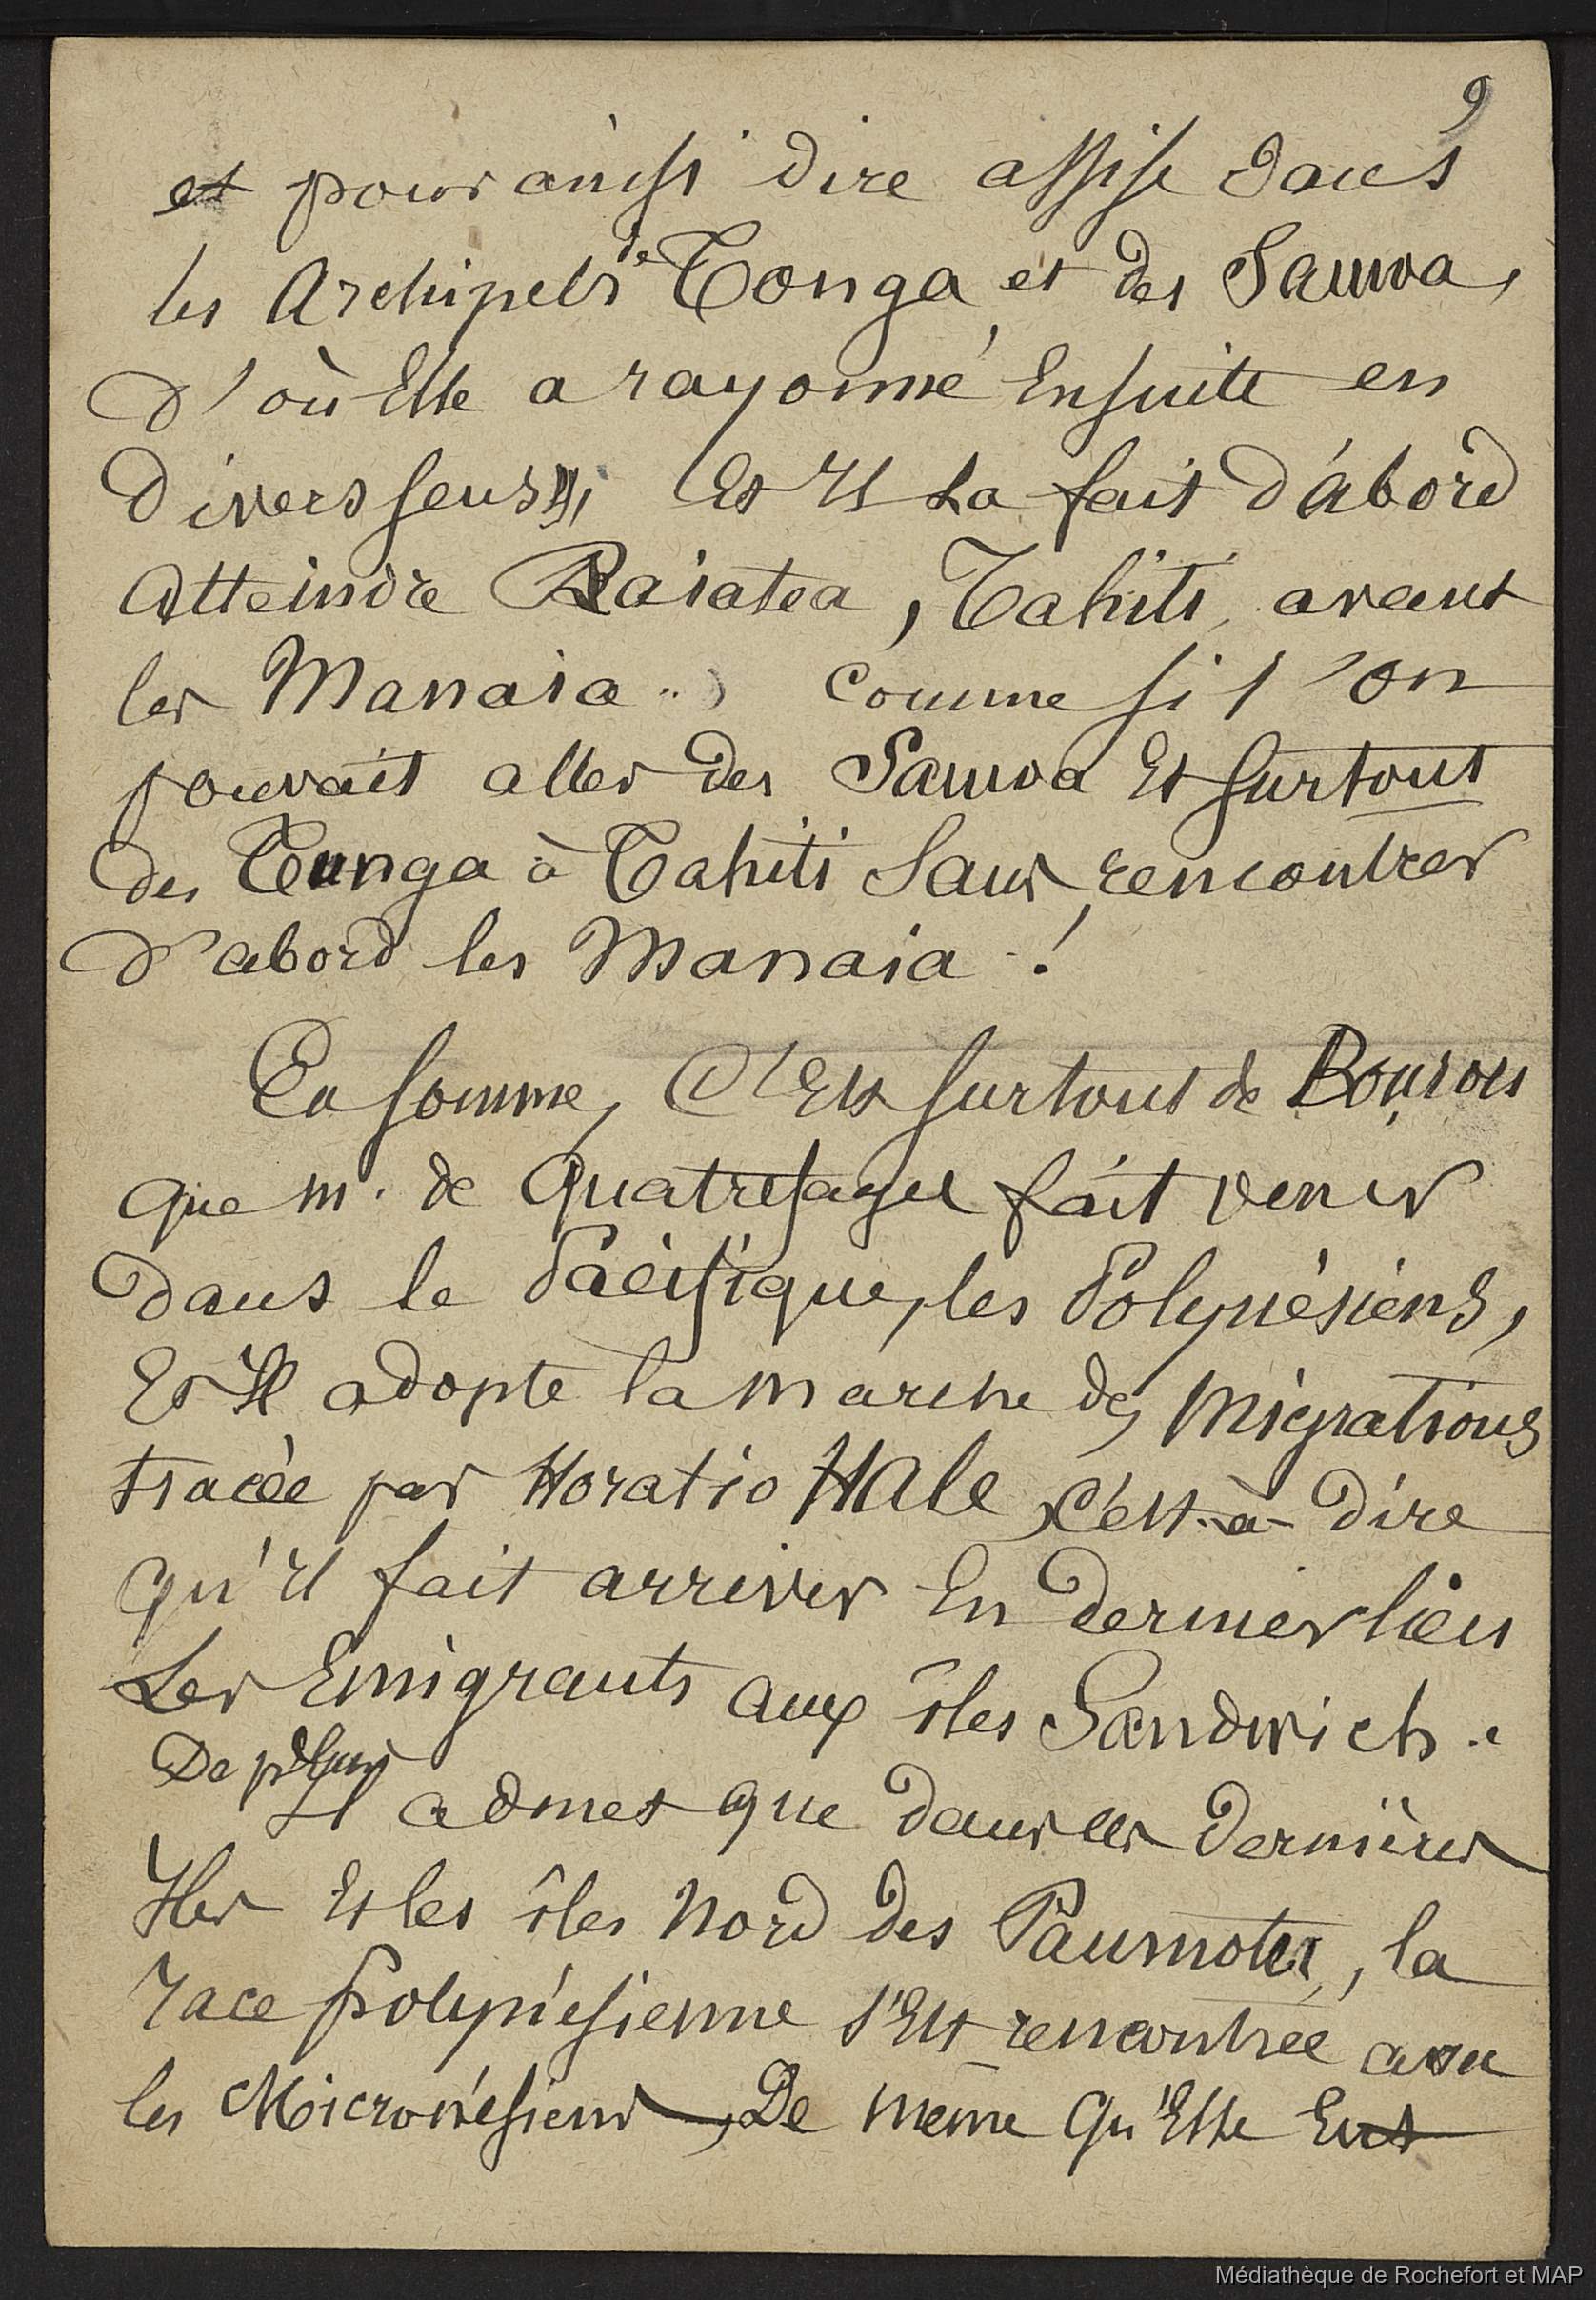 9
et pour ainsi dire assise dans
les Archipels de Tonga et des Samoa,
d'où Elle a rayonné Ensuite en
divers sens; Et Il La fait d'abord
Atteindre Raiatea, Tahiti, avant
les Manaia .. Comme si l'on
pouvait aller des Samoa Et surtout
des Tunga à Tahiti Sans rencontrer
d'abord les Manaia !
En somme, C'Est surtout de Bourou
que M. de Quatrefages fait venir
dans le Pacifique, les Polynésiens,
Et Il adopte la marche des Migrations
tracée par Horatio Hale, c'est-à-dire
qu'il fait arriver En dernier lieu
Les Emigrants aux îles Sandwich.
De plus
Il admet que dans ces dernières
Iles Et les îles Nord des Paumotu, la
race Polynésienne s'Est rencontrée avec
les Micronésiens, De même qu'Elle Eut
Médiathèque de Rochefort et MAP